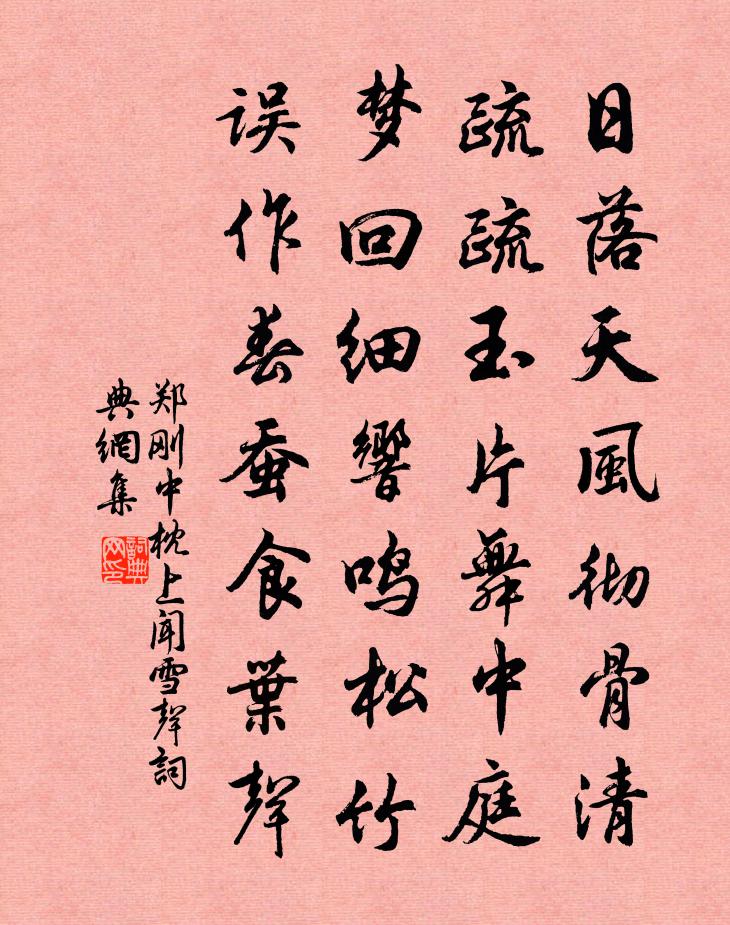 日落天風彻骨清
疏疏玉片舞中庭
梦回细響鸣松竹
误作春蚕食葉聲
郑刚中枕上闻雪聲詞
典網集
詞典網印